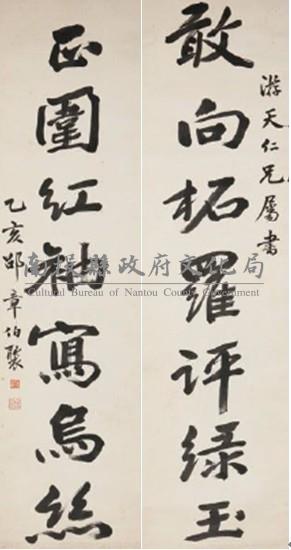 游天仁兄屬書
敢向柘羅評綠玉
正圍紅袖寫烏絲
乙亥邵章伯褧
南投縣政府文化局
Cultural Bureau of Nantou County Government